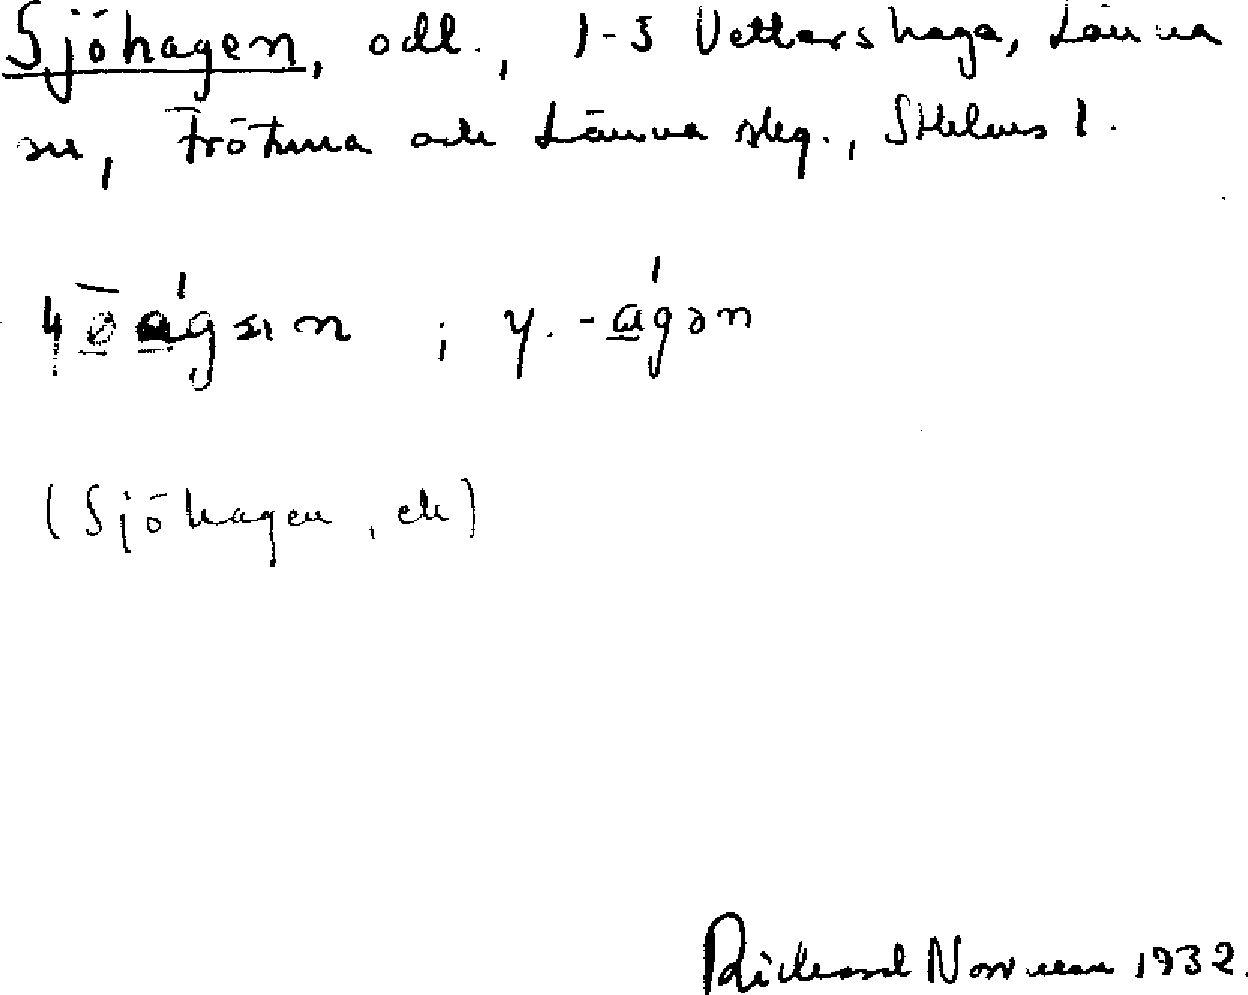 Sjöhagen, odl., 1-5 Vettershaga, Länna
sn, Frötuna och Länna skg., Sthlms l.
; y. -ágən
(Sjöhagen, ek)
Rickard Norrman 1932.